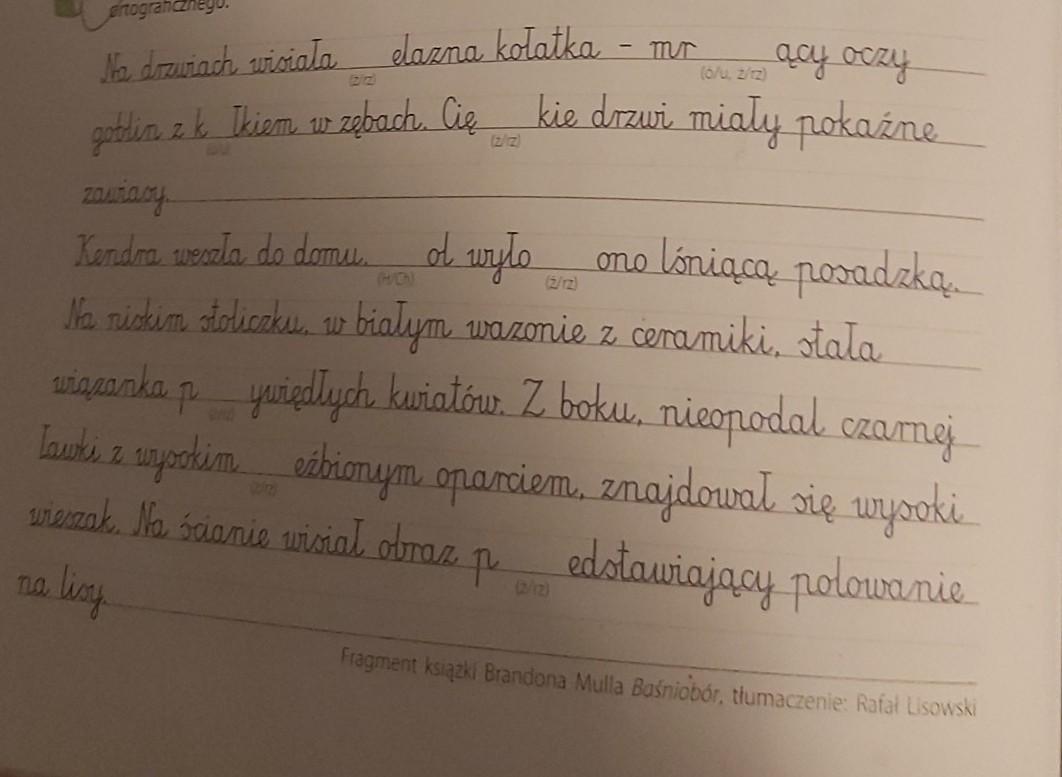 ortograficznego.
Na drzwiach wisiała ___ elazna kołatka – mr ___ ący oczy
(ż/rz) (ó/u, ż/rz)
goblin z k __ łkiem w zębach. Cię ___ kie drzwi miały pokaźne
(ó/u) (ż/rz)
zawiasy.
Kendra weszła do domu. ___ ol wyło ___ ono lśniącą posadzką.
(H/Ch) (ż/rz)
Na niskim stoliczku, w białym wazonie z ceramiki, stała
wiązanka p ___ ywiędłych kwiatów. Z boku, nieopodal czarnej
(ż/rz)
ławki z wysokim ___ eźbionym oparciem, znajdował się wysoki
(ż/rz)
wieszak. Na ścianie wisiał obraz p ___ edstawiający polowanie
(ż/rz)
na lisy.
Fragment książki Brandona Mulla Baśniobór, tłumaczenie: Rafał Lisowski